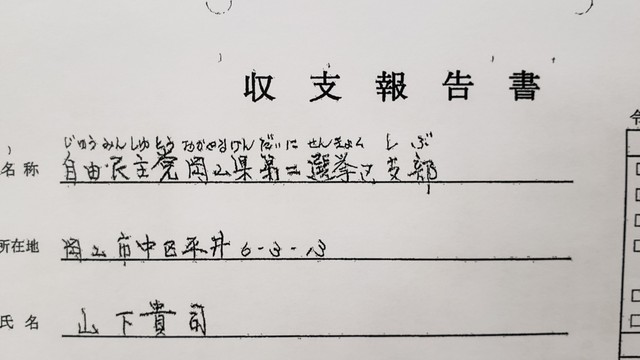 収支報告書
じゆうみんしゅとう おかやまけんだいに せんきょく しぶ
名称 自由民主党岡山県第二選挙区支部
所在地 岡山市中区平井6-3-13
氏名 山下貴司
令